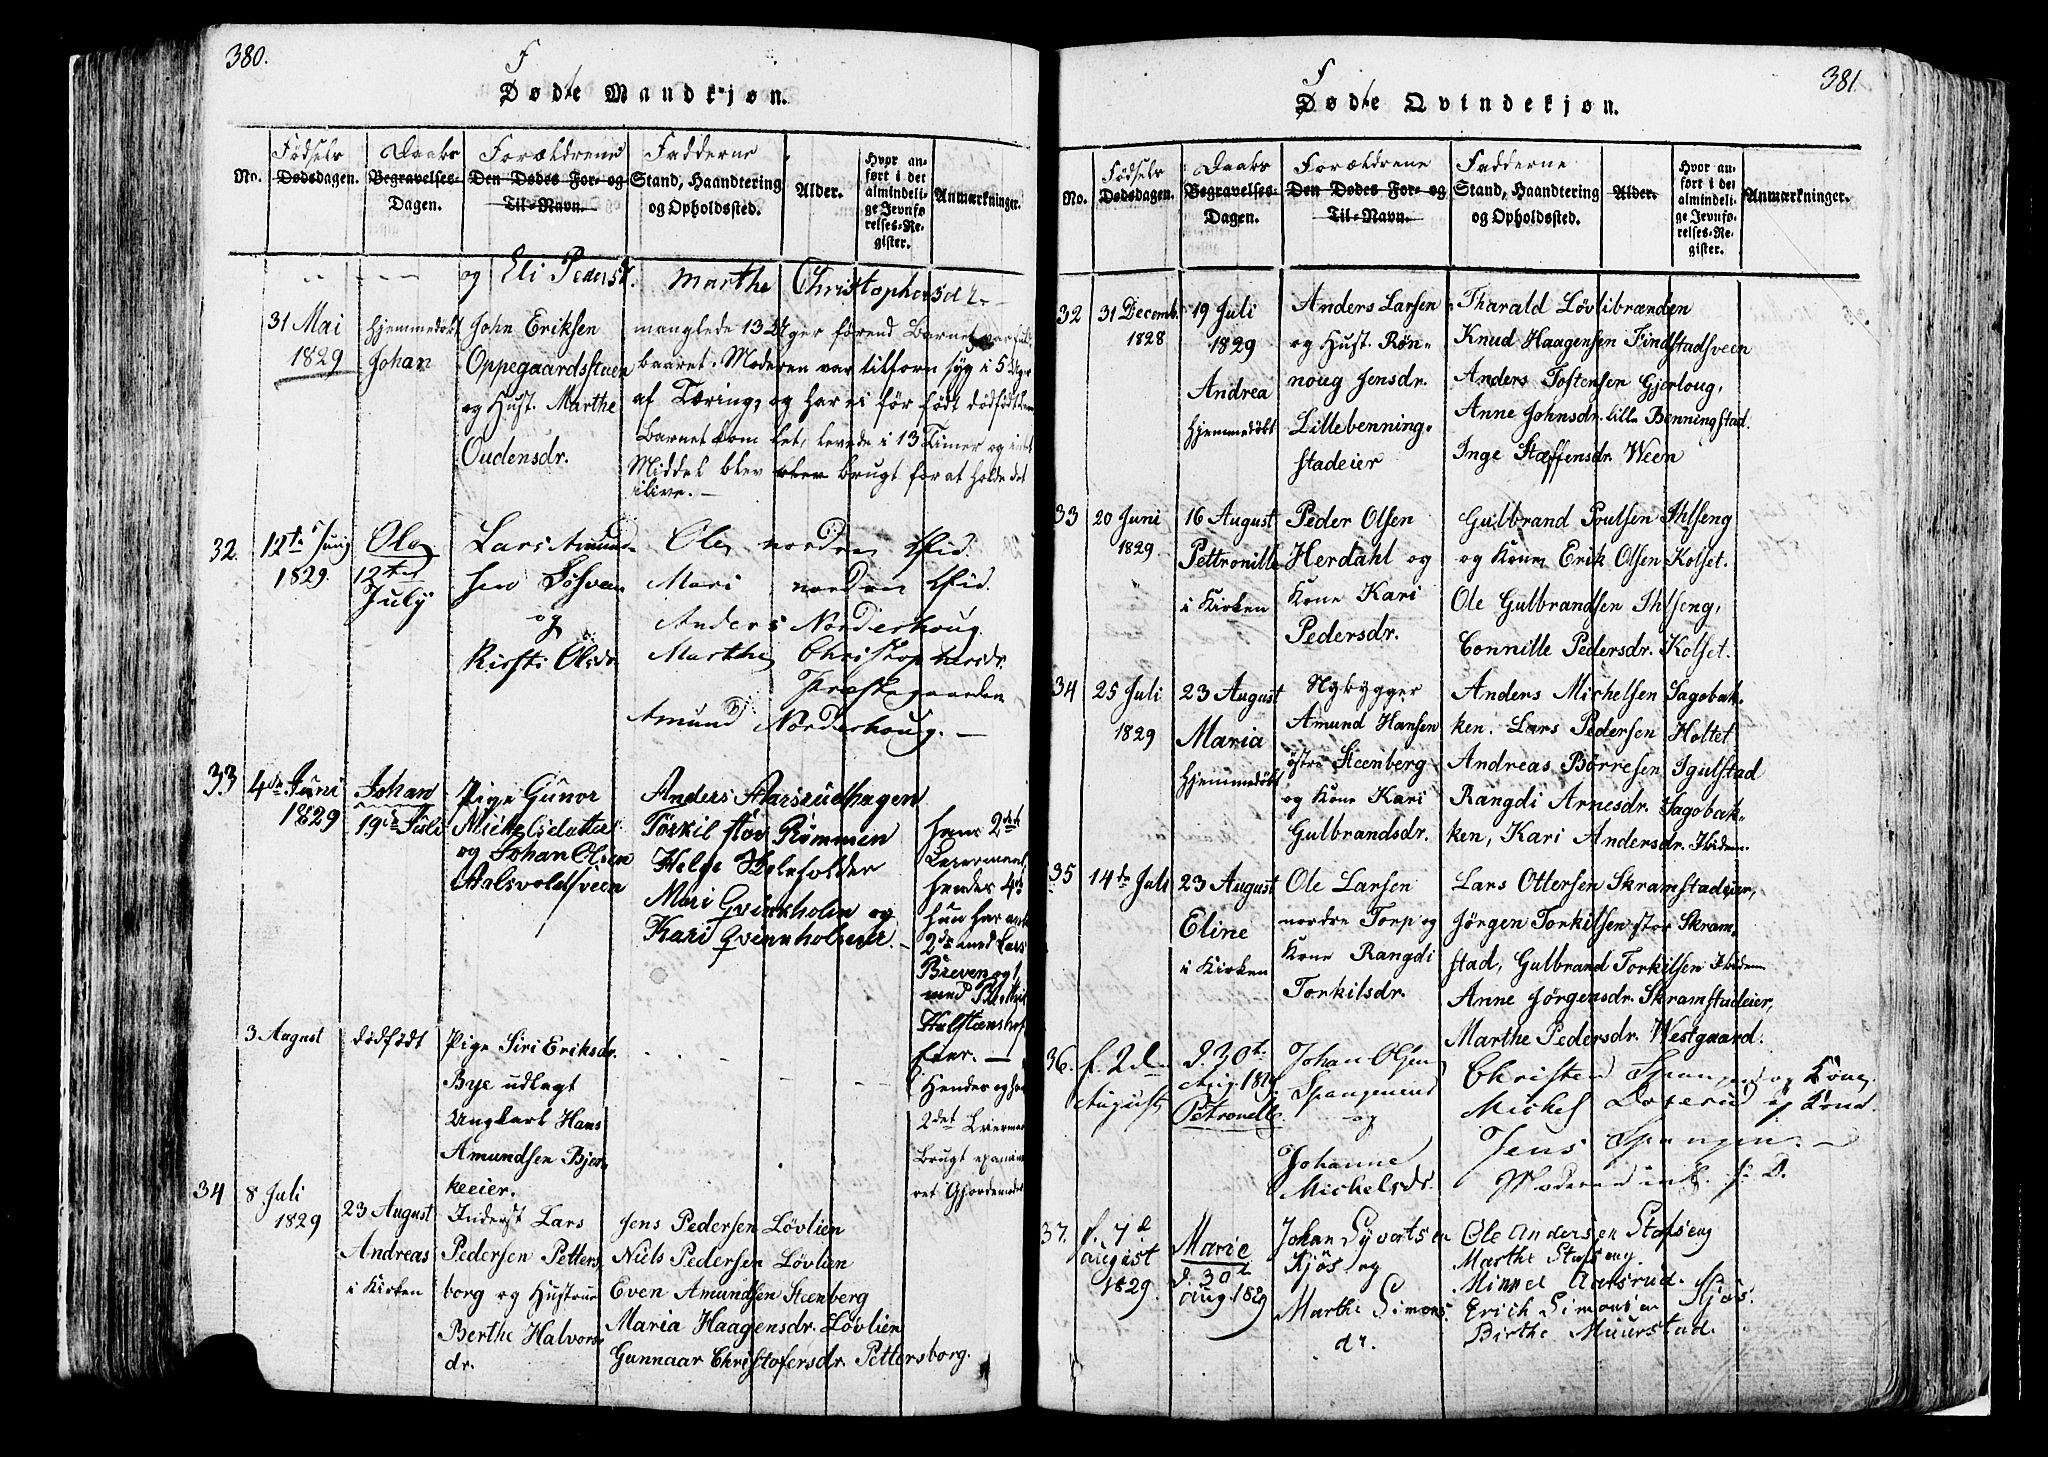 380.
F
Dødte Mandkjøn.
No.
Fødsels
Dødsdagen.
Daabs
Begravelses-
Dagen.
Forældrene
Den Dødes For- og
Til-Navn.
Fadderne
Stand, Haandtering
og Opholdssted.
Alder.
Hvor an-
ført i det
almindeli-
ge Jevnfø-
relses-Re-
gister.
Anmærkninger.
og Eli Pedersd. Marthe Christophersdr.
31 Mai
1829
hjemmedøbt
Johan
John Eriksen
Oppegaardsstuen
og Hust. Marthe
Oudensdr.
manglede 13 Uger førend Barnet var ful-
baaret. Moderen var tilforn syg i 5 Uger
af Tæring, og har ei før født dødfødt
Barnet kom let, levede i 13 Timer og intet
Middel blev blev brugt for at holde det
ilive.
32.
12te Juny
1829.
Ole
12te
July
Lars Amund-
sen
og
Kirsti Olsdr.
Ole norden
Mari norden
Anders Norderhoug
Marthe Christophersdr.
Præstegaarden
Amund Norderhoug.
33
4de Juni
1829
Johan
19de Juli
Pige Gunor
Michelsdatter
og Johan Olsen
Aalsvoldsveen
Anders Aarsrudhagen
Torkil stov Rømmen
Helge
Mari Qvinnholen og
Kari Qvinnholen
hans 2det
Leiermaal
hendes 4de
hun har
2de med Lars
Breven og 1
med
eier.
3 August
dødfødt
Pige Siri Eriksdr.
Bye udlagt
Ungkarl Hans
Amundsen Bjer-
keeier.
Hendes og hans
2det Leierm
brugt
ret Gjordemoder
34
8 Juli
1829
23 August
Andreas
i Kirken
Inderst Lars
Pedersen Petters-
borg og Hustrue
Berthe Halvors-
dr.
Jens Pedersen Løvlien
Niels Pedersen Løvlien
Even Amundsen Steenberg
Maria Haagensdr. Løvlien
Gunnaar Christofersdr. Pettersborg.
381.
F
Dødte Qvindekjøn.
No.
Fødsels
Dødsdagen.
Daabs
Begravelses-
Dagen.
Forældrene
Den Dødes For- og
Til-Navn.
Fadderne
Stand, Haandtering
og Opholdssted.
Alder.
Hvor an-
ført i det
almindeli-
ge Jevnfø-
relses-Re-
gister.
Anmærkninger.
32
31 Decemb.
1828
19 Juli
1829
Andrea
hjemmedøbt
Anders Larsen
og Hust. Røn-
noug Jensdr.
Lillebenning-
stadeier
Tharald Løvlibranden
Knud Haagensen Findstadsveen
Anders Tostensen Gjerloug,
Anne Johnsdr. lille Benningstad.
Inge Stæffensdr. Ween
33
20 Juni
1829
16 August
Pettronille
i Kirken
Peder Olsen
Herdahl og
Kone Kari
Pedersdr.
Gulbrand Poulsen Ihlseng
og Kone, Erik Olsen Kolset.
Ole Gulbrandsen Ihlseng,
Connille Pedersdr. Kolset.
34
25 Juli
1829
23 August
Maria
hjemmedøbt
Nybygger
Amund Hansen
østre Steenberg
og Kone Kari
Gulbrandsdr.
Anders Michelsen Sagobak-
ken. Lars Pedersen Holtet
Andreas Børresen Igulstad
Rangdi Arnesdr. Sagobak-
ken, Kari Andersdr. Ibidem.
35
14de Juli
23 August
Eline
i Kirken
Ole Larsen
nordre Torp og
Kone Rangdi
Torkilsdr.
Lars Ottersen Skramstadeier,
Jørgen Torkilsen stor Skram-
stad, Gulbrand Torkilsen Ibidem
Anne Jørgensdr. Skramstadeier,
Marthe Pedersdr. Westgaard.
36.
f. 2d
Augusti
d. 30te
Aug. 1829
Petronelle
Johan Olsen
Spangenend
og
Johanne
Michelsdr.
Christen Spangen og Kone.
Michel og Kone.
Jens Spangen.
Moderen int. f. D.
37.
f. 7d
August
1829.
Marie
d. 30d
Aug. 1829
Johan Syvertsen
Kjøs og
Marthe Simens
dr.
Ole Andersen Stafseng
Marthe Stafseng
Mikkel Aarsrud.
Erich Simensen Kjøs.
Birthe Muurstad.